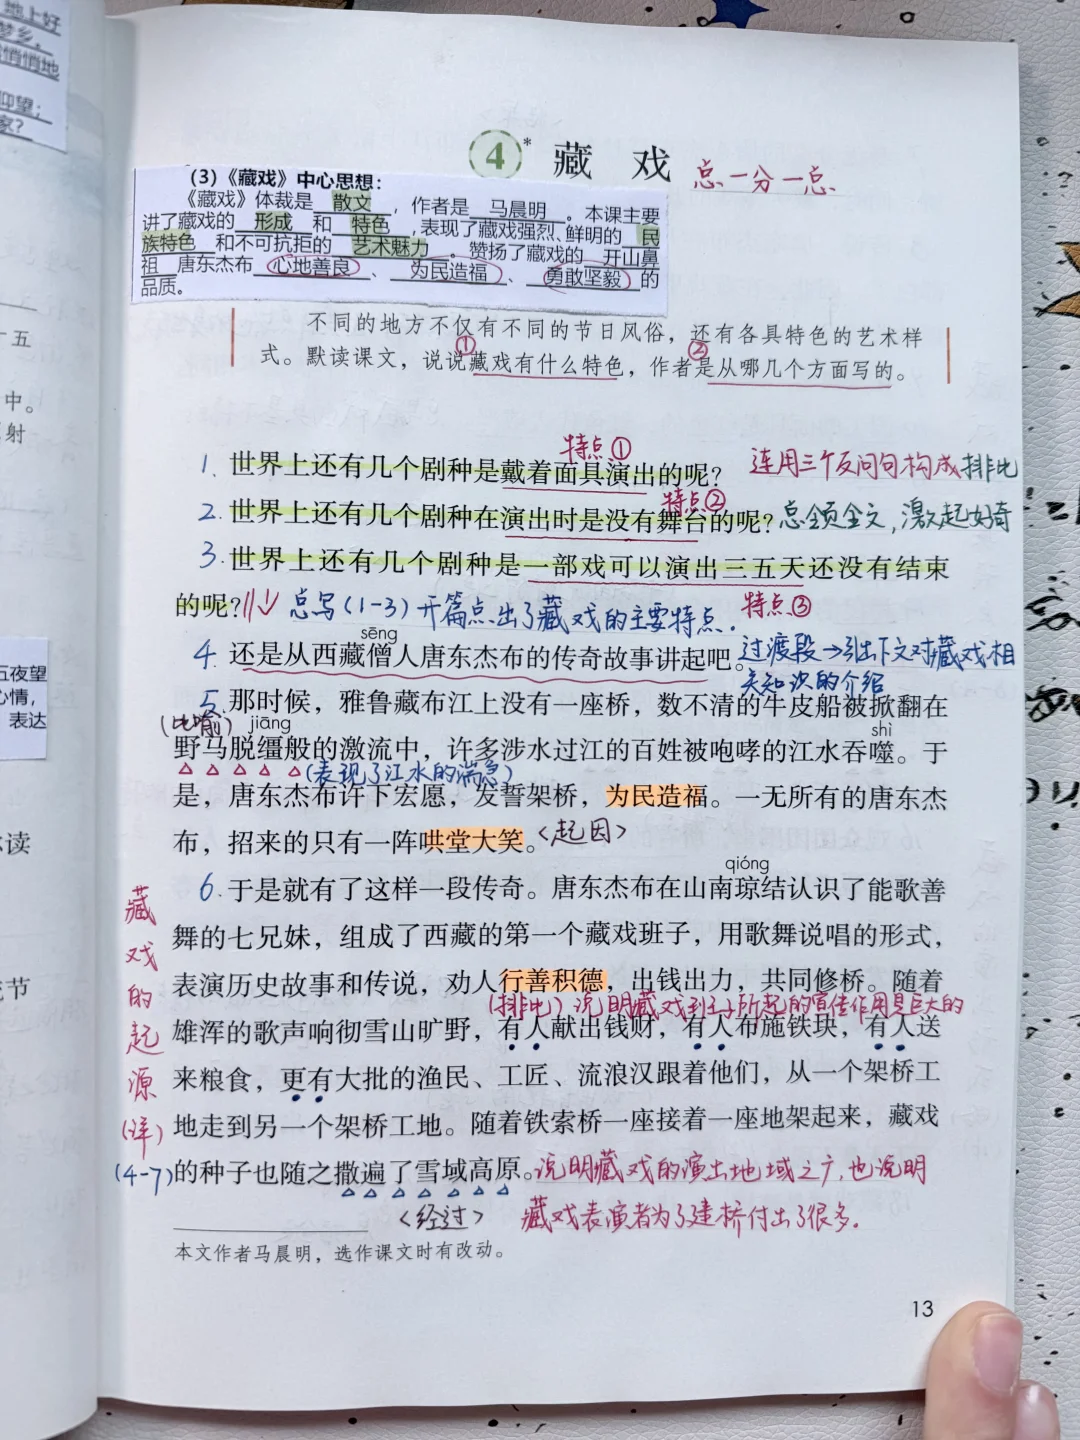 地上好
梦乡，
悄悄地
仰望；
家？
十五
中。
射
五夜望
心情，
表达
读
节
4* 藏戏
总一分一总
(3)《藏戏》中心思想：
《藏戏》体裁是 散文 ，作者是 马晨明 。本课主要
讲了藏戏的 形成 和 特色 ，表现了藏戏强烈、鲜明的 民
族特色 和不可抗拒的 艺术魅力 。赞扬了藏戏的 开山鼻
祖 唐东杰布 心地善良 、 为民造福 、 勇敢坚毅 的
品质。
不同的地方不仅有不同的节日风俗，还有各具特色的艺术样
① ②
式。默读课文，说说藏戏有什么特色，作者是从哪几个方面写的。
特点①
1. 世界上还有几个剧种是戴着面具演出的呢？
连用三个反问句构成排比
特点②
2. 世界上还有几个剧种在演出时是没有舞台的呢？
总领全文，激起好奇
3. 世界上还有几个剧种是一部戏可以演出三五天还没有结束
的呢？
总写（1-3）开篇点出了藏戏的主要特点.
特点③
sēng
4. 还是从西藏僧人唐东杰布的传奇故事讲起吧。
过渡段→引出下文对藏戏相
关知识的介绍
5. 那时候，雅鲁藏布江上没有一座桥，数不清的牛皮船被掀翻在
(比喻) jiāng shì
野马脱缰般的激流中，许多涉水过江的百姓被咆哮的江水吞噬。于
(表现了江水的湍急)
是，唐东杰布许下宏愿，发誓架桥，为民造福。一无所有的唐东杰
布，招来的只有一阵哄堂大笑。
<起因>
qióng
6. 于是就有了这样一段传奇。唐东杰布在山南琼结认识了能歌善
舞的七兄妹，组成了西藏的第一个藏戏班子，用歌舞说唱的形式，
表演历史故事和传说，劝人行善积德，出钱出力，共同修桥。随着
(排比)说明藏戏班子所起的宣传作用是巨大的
雄浑的歌声响彻雪山旷野，有人献出钱财，有人布施铁块，有人送
来粮食，更有大批的渔民、工匠、流浪汉跟着他们，从一个架桥工
地走到另一个架桥工地。随着铁索桥一座接着一座地架起来，藏戏
的种子也随之撒遍了雪域高原。
说明藏戏的演出地域之广，也说明
藏戏表演者为了建桥付出了很多.
<经过>
藏戏的起源（详）
(4-7)
本文作者马晨明，选作课文时有改动。
13